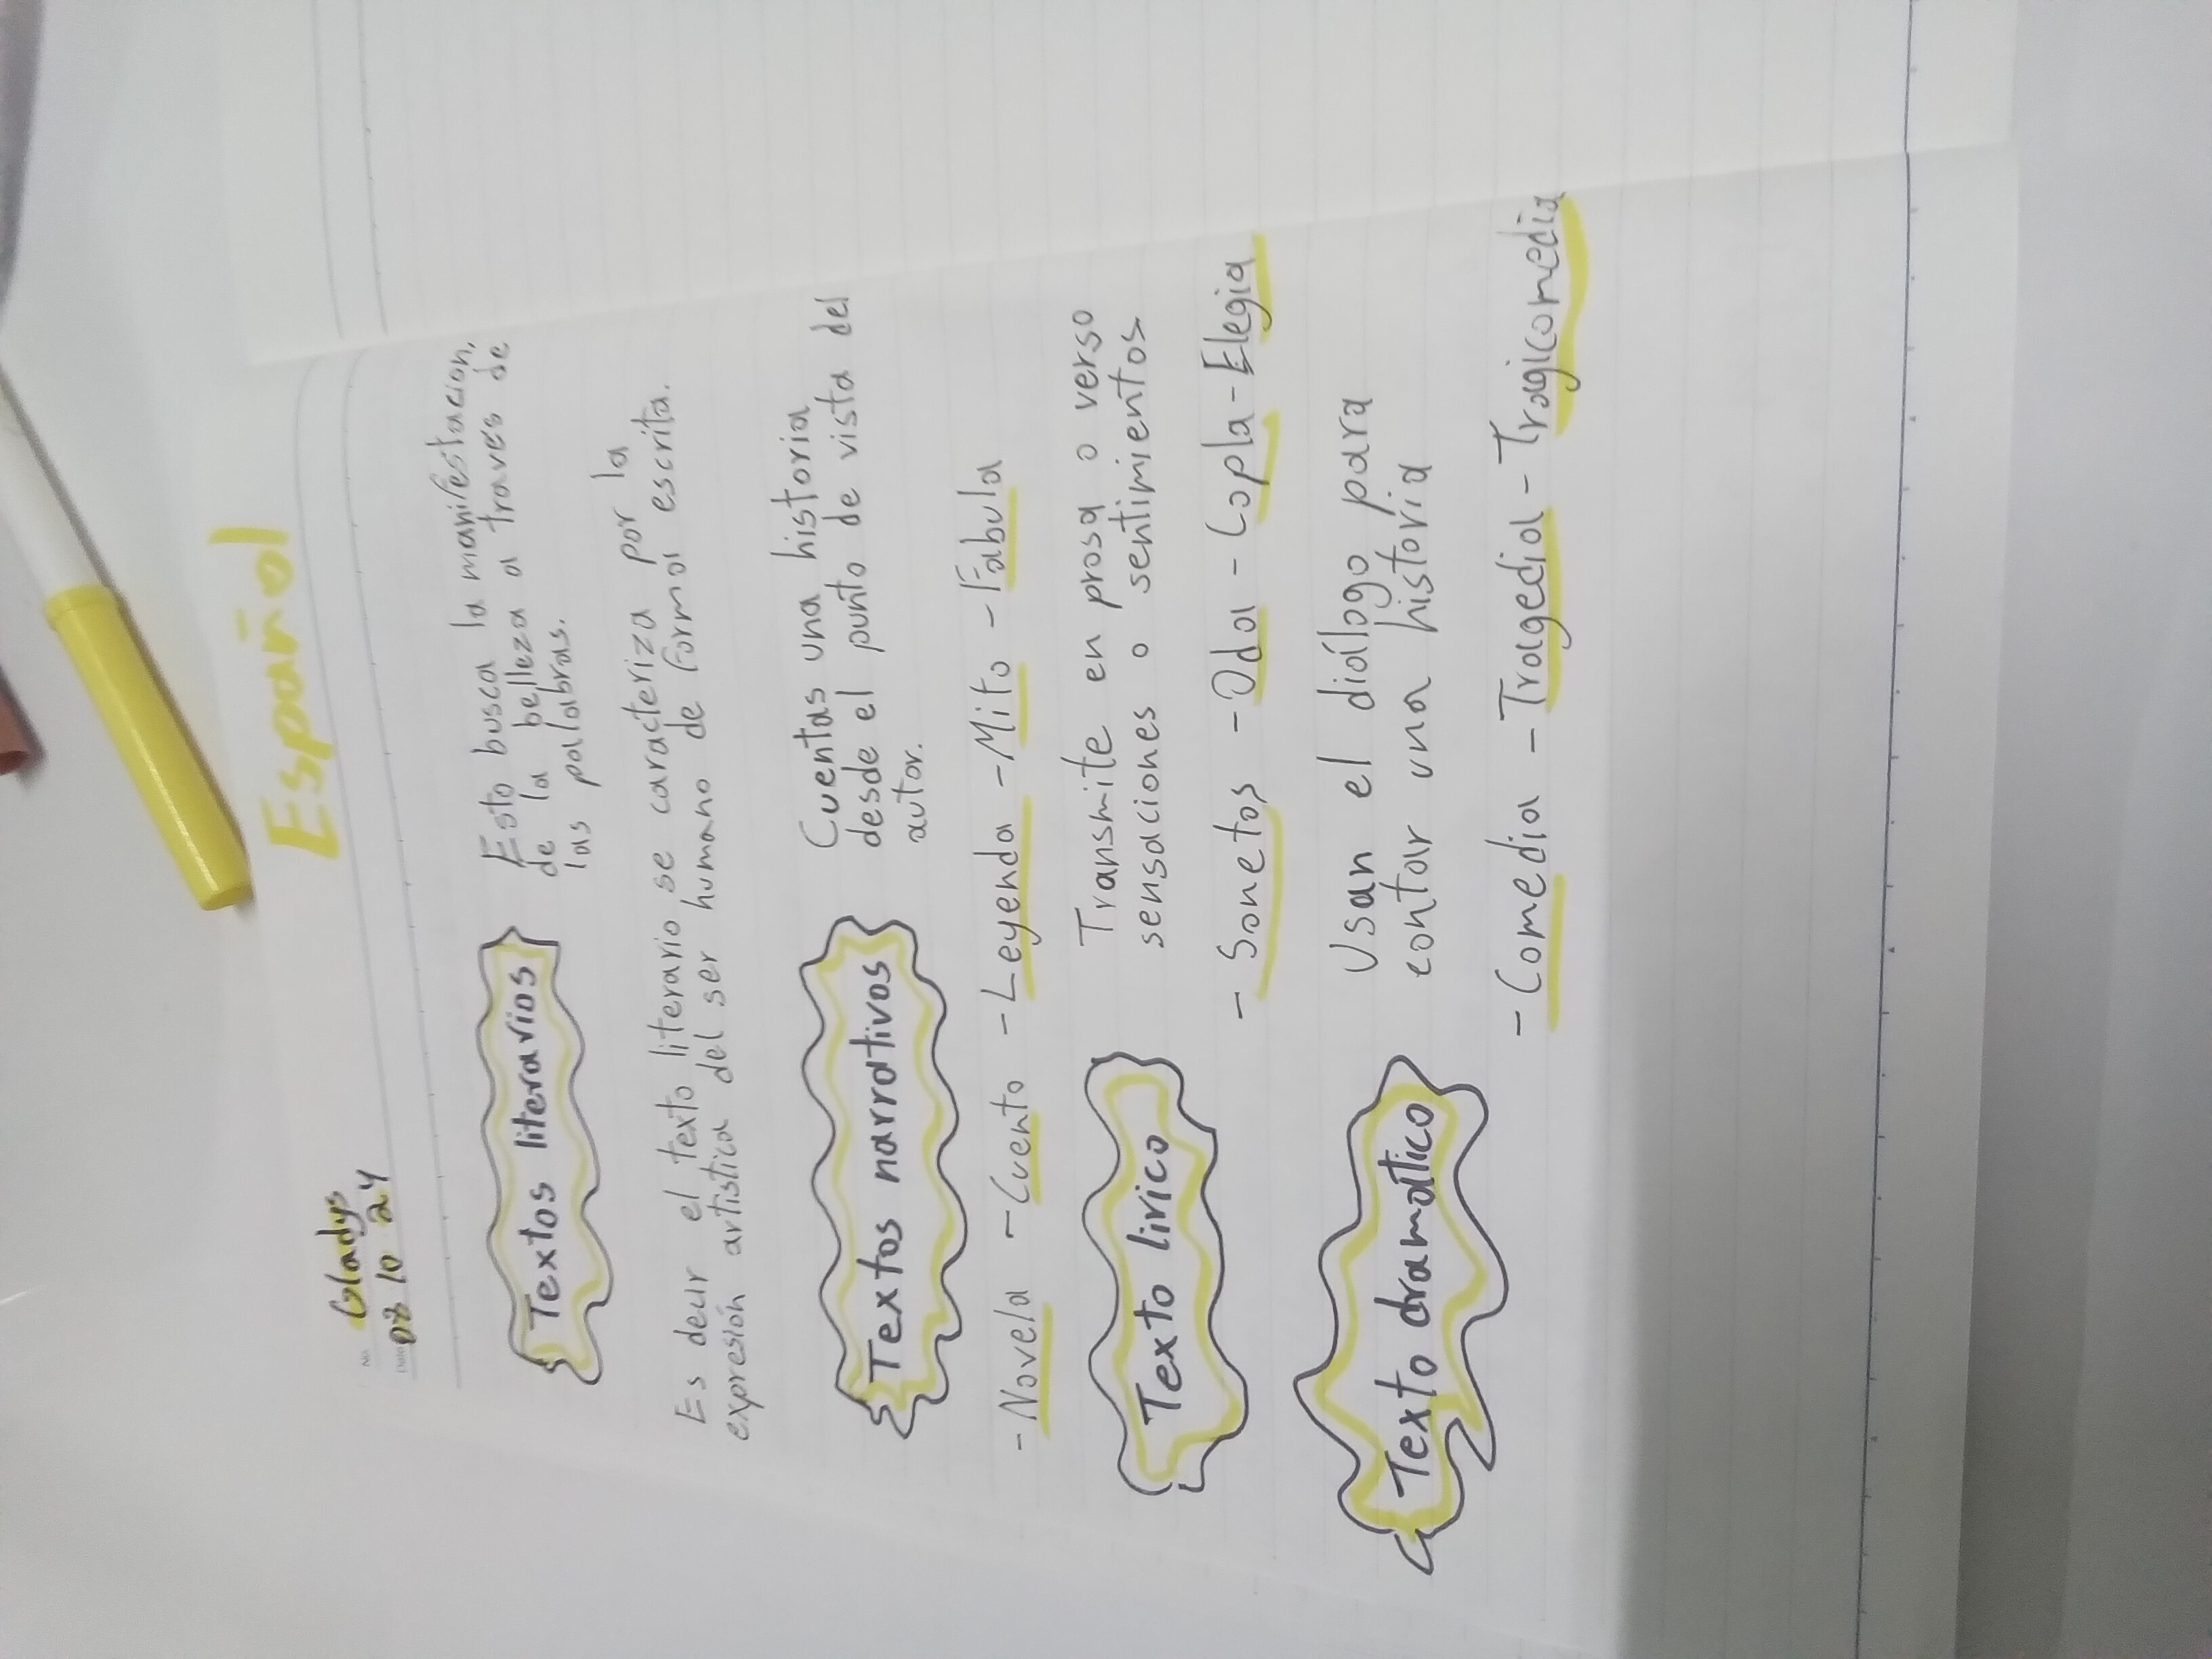 Español
Gladys
08 10 24
Textos literarios
Esto busca la manifestacion,
de la belleza a traves de
las palabras.
Es decir el texto literario se caracteriza por la
expresión artistica del ser humano de forma escrita.
Textos narrativos
Cuentas una historia
desde el punto de vista del
autor.
-Novela -Cuento -Leyenda -Mito -Fabula
Texto lirico
Transmite en prosa o verso
sensaciones o sentimientos
- Sonetos -Oda - Copla - Elegia
Texto dramático
Usan el diálogo para
contar una historia
-Comedia -Tragedia - Tragicomedia